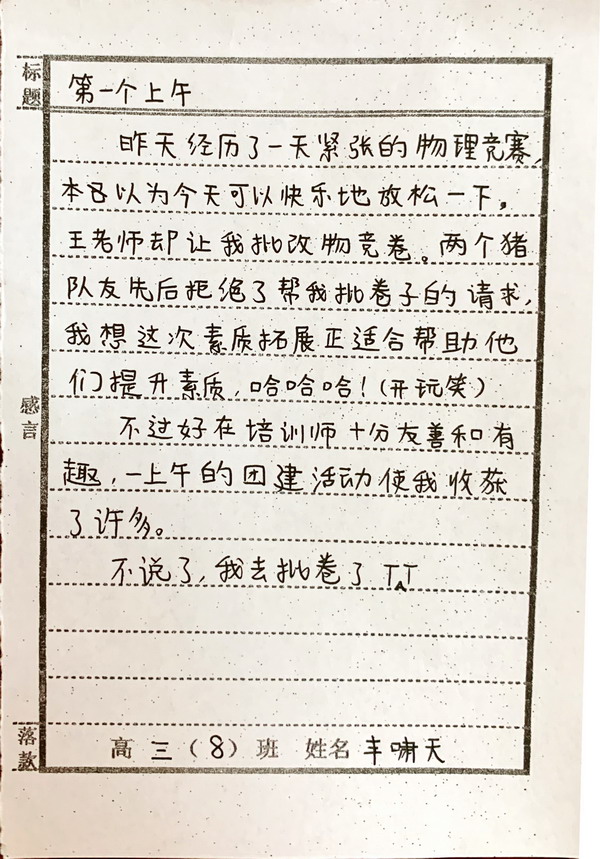 标题
第一个上午
昨天经历了一天紧张的物理竞赛，
本以为今天可以快乐地放松一下。
王老师却让我批改物竞卷。两个猪
队友先后拒绝了帮我批卷子的请求，
我想这次素质拓展正适合帮助他
们提升素质，哈哈哈！(开玩笑)
感言
不过好在培训师十分友善和有
趣，一上午的团建活动使我收获
了许多。
不说了，我去批卷了 T^T
落款
高三（8）班 姓名 丰啸天